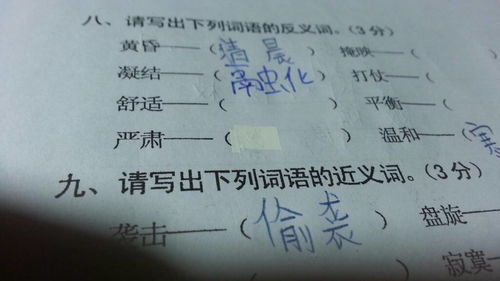 八、请写出下列词语的反义词。(3分)
黄昏——(清晨) 掩映——(
凝结——(融化) 打仗——(
舒适——( ) 平衡——(
严肃——( ) 温和——(寒
九、请写出下列词语的近义词。(3分)
袭击——(偷袭) 盘旋—
( ) 寂寞—